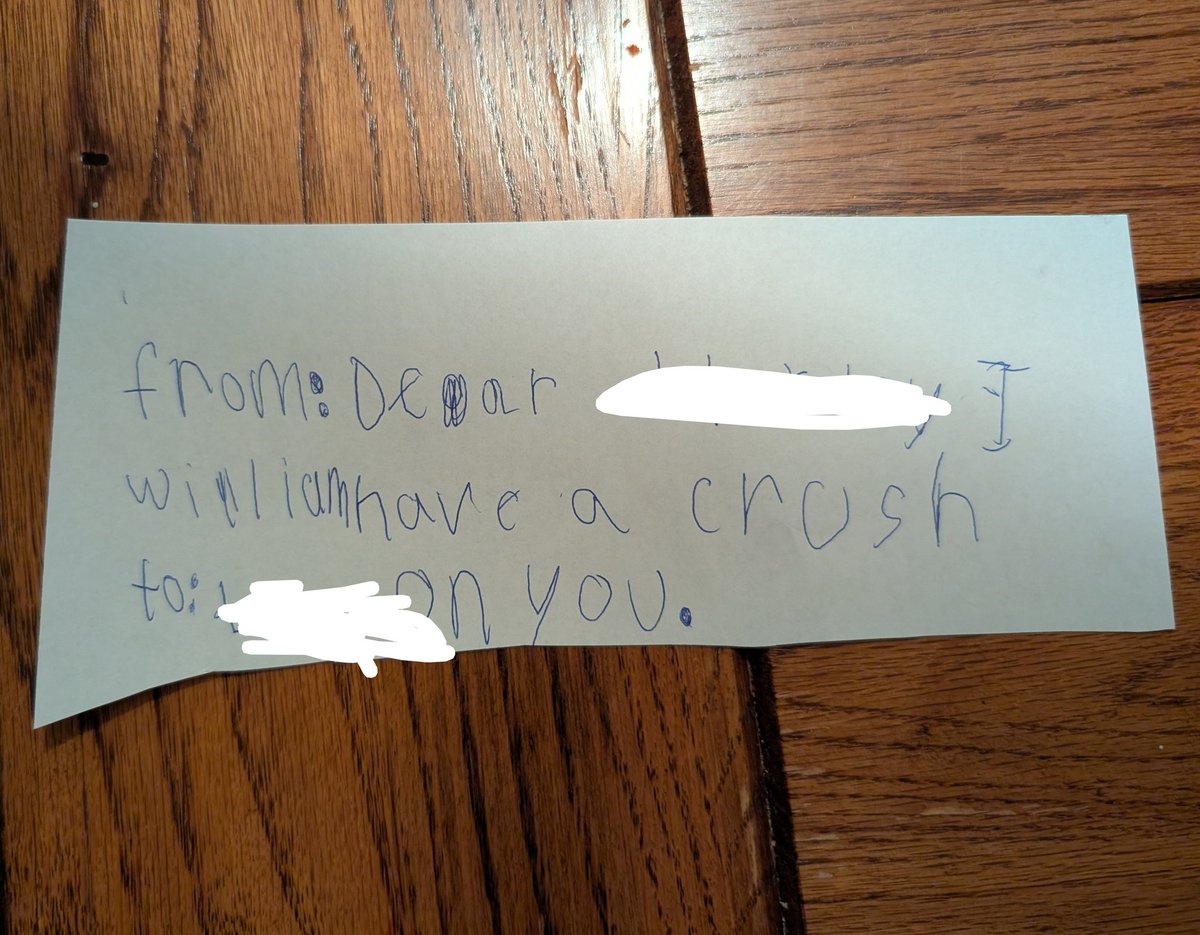 from: Dear I
william have a crush
to: on you.